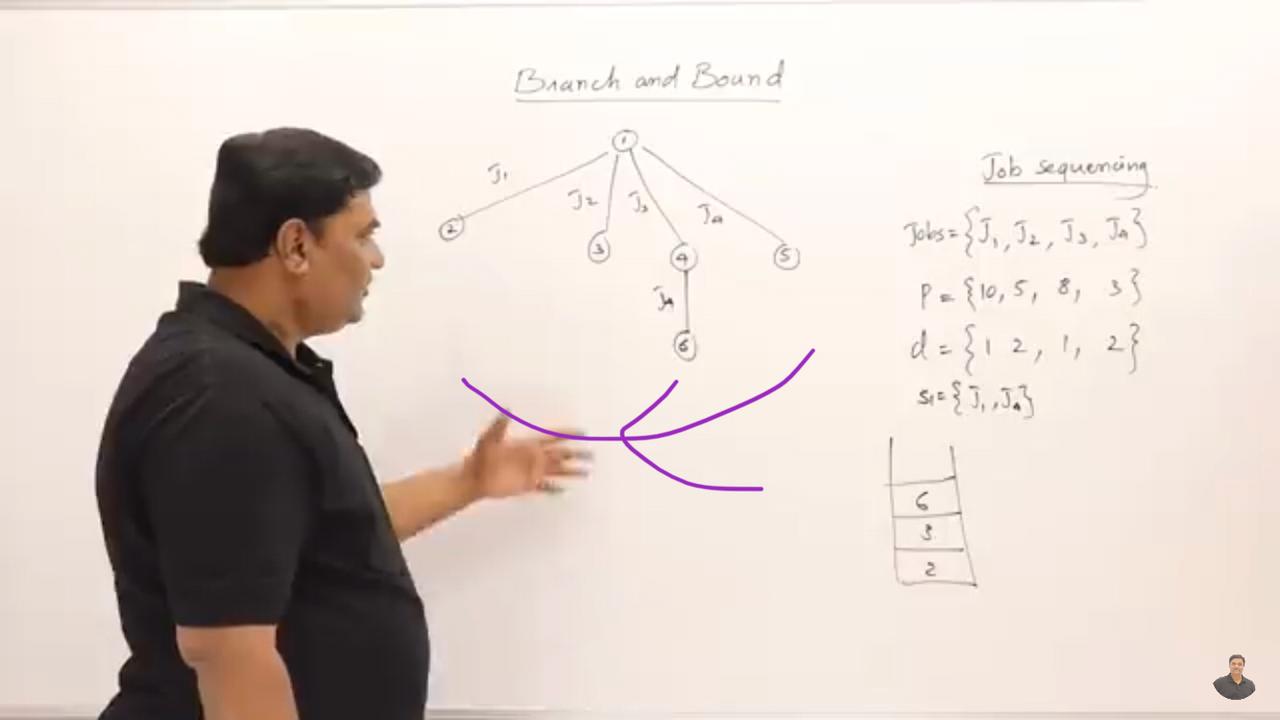 Branch and Bound
1
J1
J2
J3
J4
2
3
4
5
J4
6
Job sequencing
Jobs = {J1, J2, J3, J4}
P = {10, 5, 8, 3}
d = {1 2, 1, 2}
S1 = {J1, J4}
6
3
2